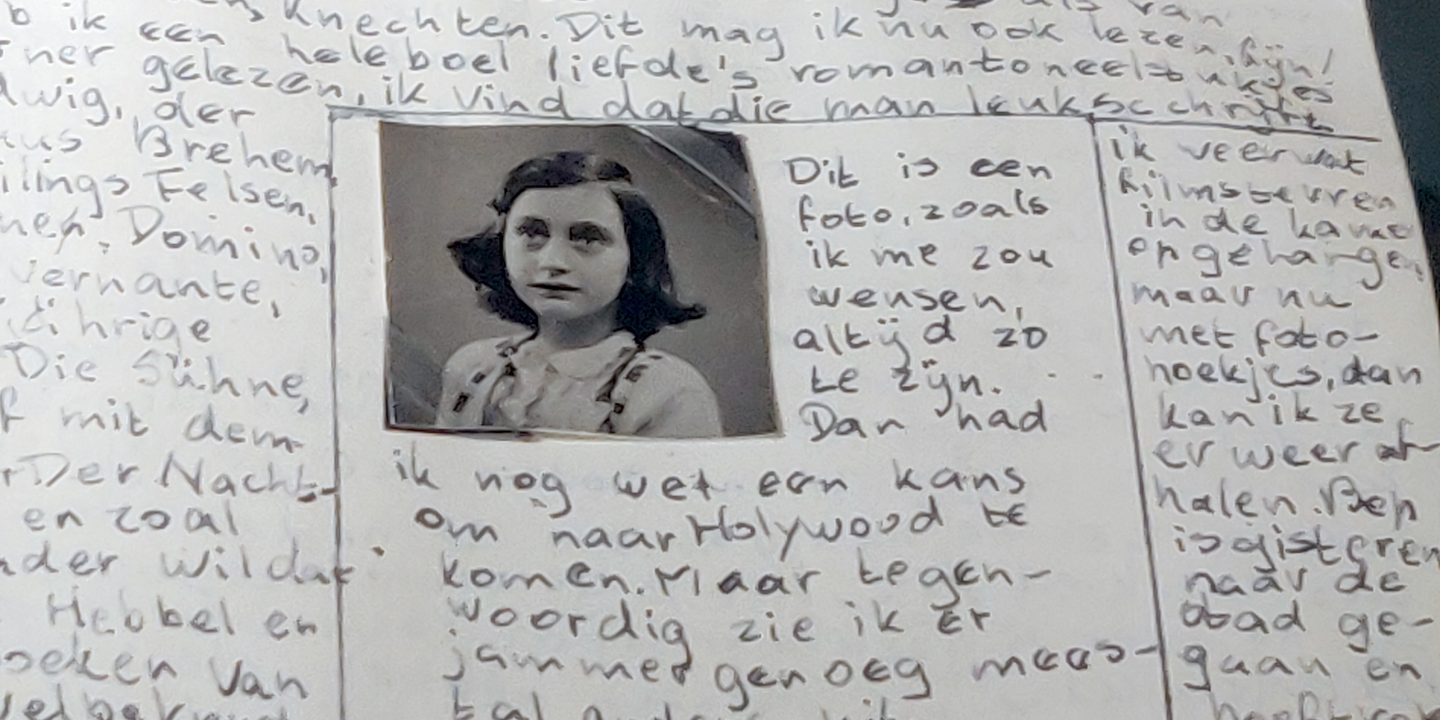 ik een knechten. Dit mag ik nu ook lezen, fijn!
ner gelezen, heleboel liefde's romantoneelstukjes
ik vind dat die man leuk schrijft
wig, der
Brehem
ilings Felsen,
Domino,
vernante,
jährige
Die Sühne,
mit dem
Der Nacht-
en zoal
Hebbel en
van
Dit is een
foto, zoals
ik me zou
wensen,
altijd zo
te zijn.
Dan had
ik nog wel een kans
om naar Holywood te
komen. Maar tegen-
woordig zie ik er
jammer genoeg mees-
tal
ik weer wat
filmsterren
in de kamer
opgehangen,
maar nu
met foto-
hoekjes, dan
kan ik ze
er weer af-
halen. Bep
is gisteren
naar de
stad ge-
gaan en